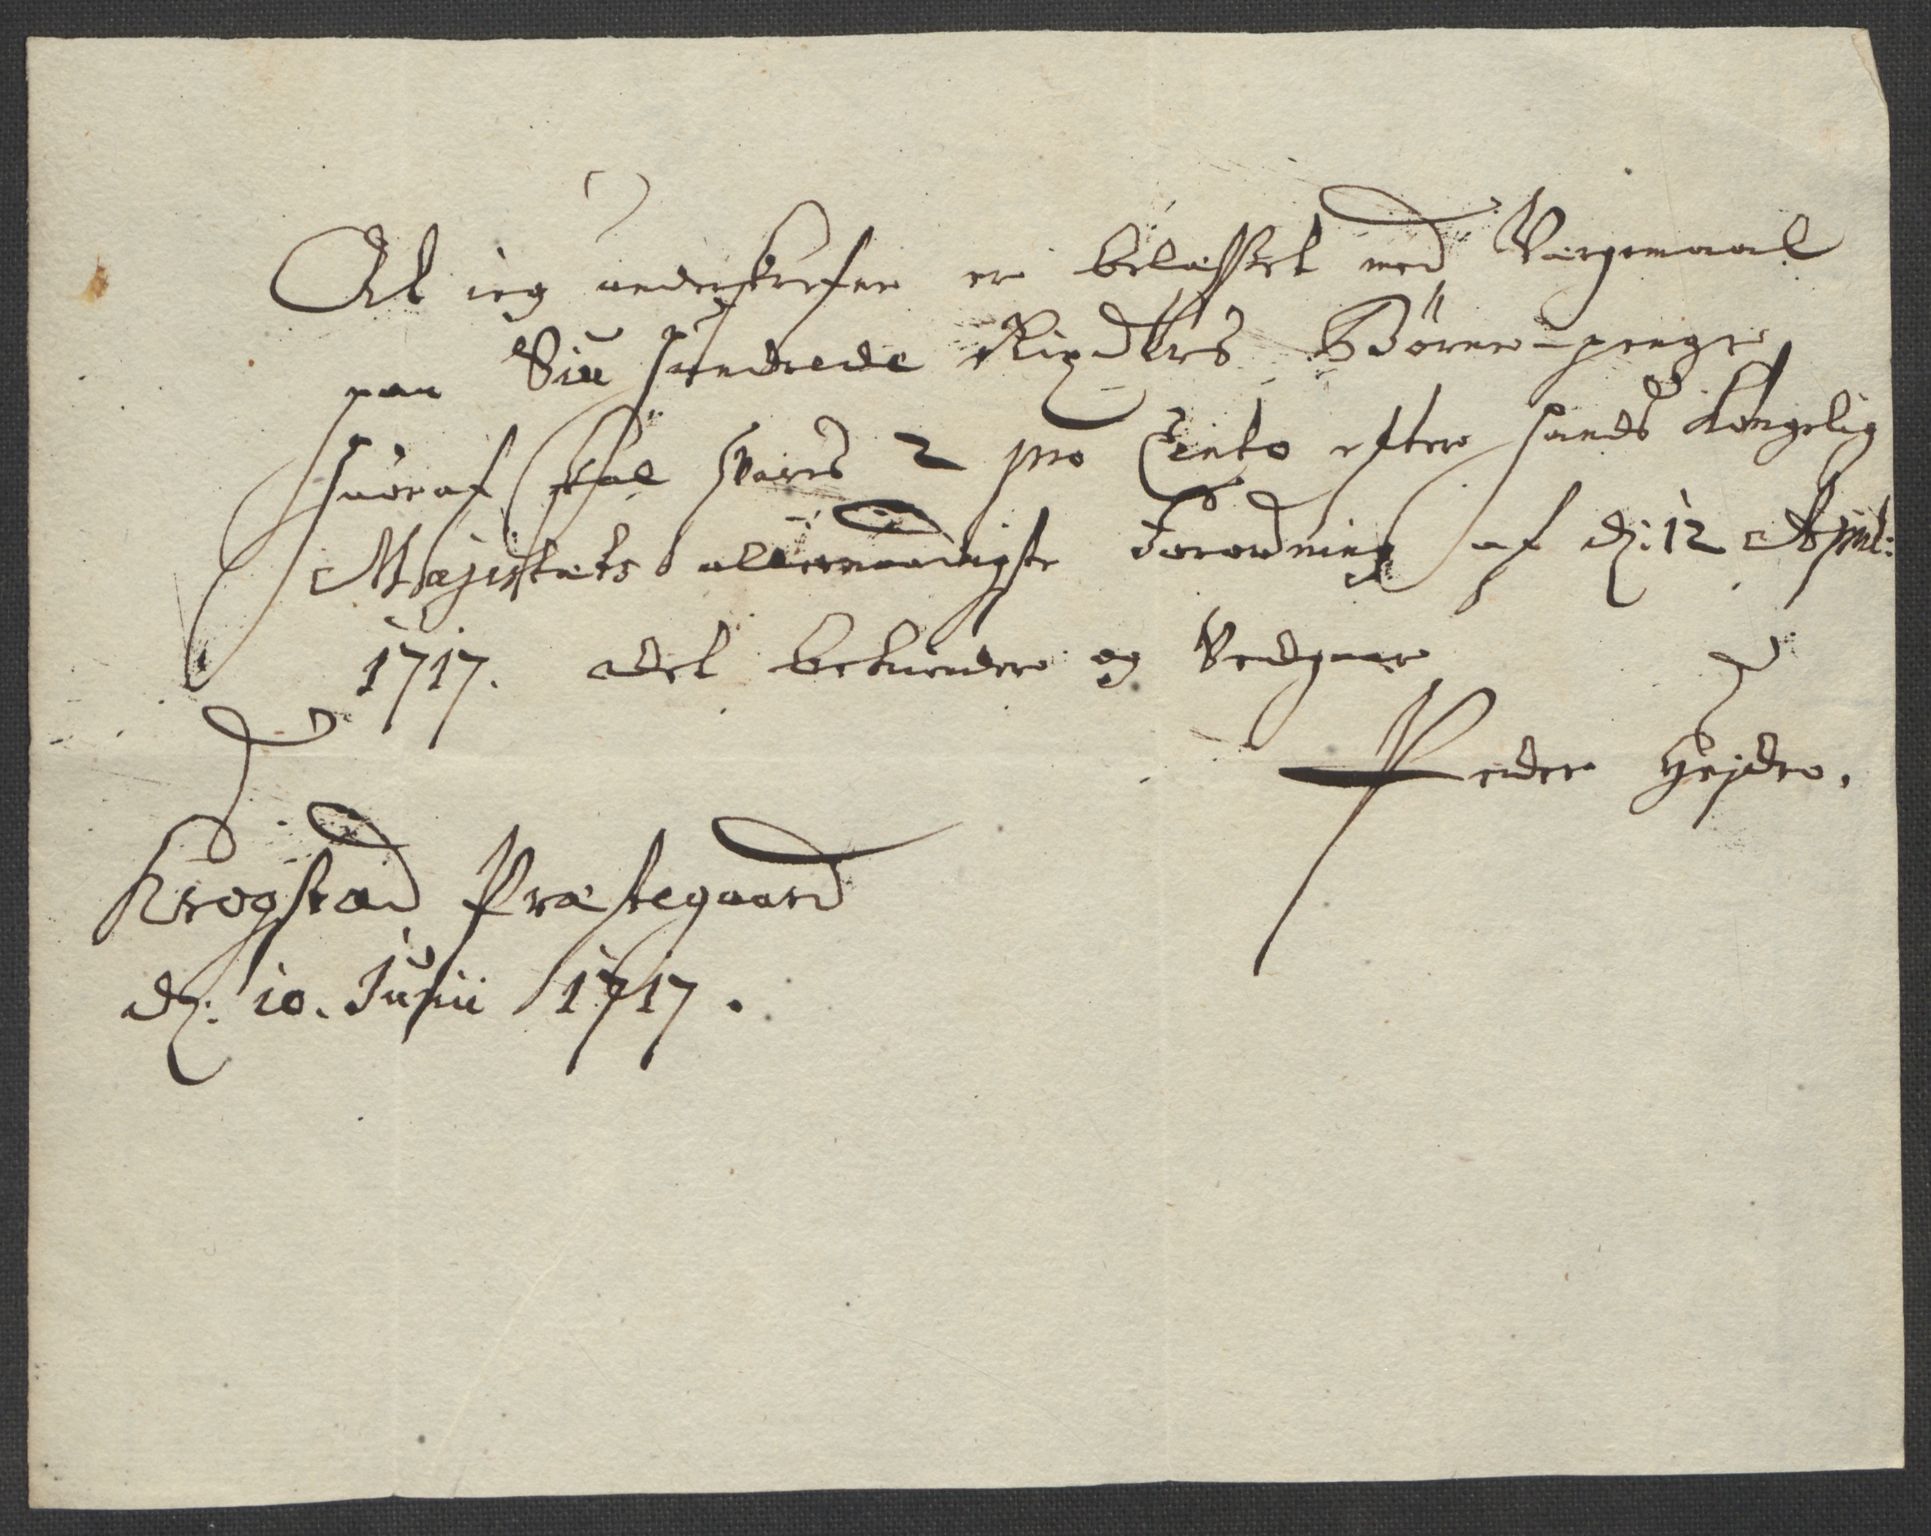 At ieg underskrefne er belasstet med Værgemaal
paa Siu hundrede Rixdlrs Börne-penge
huoraf skal svares 2 pro Cento efter hands Kongelig
Majestets allernaadigste Forordning af d: 12 April:
1717. det bekiender og Vedgaar
Peder Hejdro.
Krogstad Præstegaard
d: 10. Junii 1717.